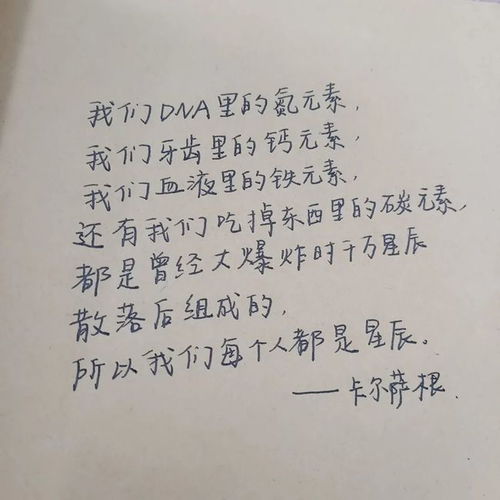 我们DNA里的氮元素,
我们牙齿里的钙元素,
我们血液里的铁元素,
还有我们吃掉东西里的碳元素,
都是曾经大爆炸时千万星辰
散落后组成的,
所以我们每个人都是星辰。
——卡尔萨根.